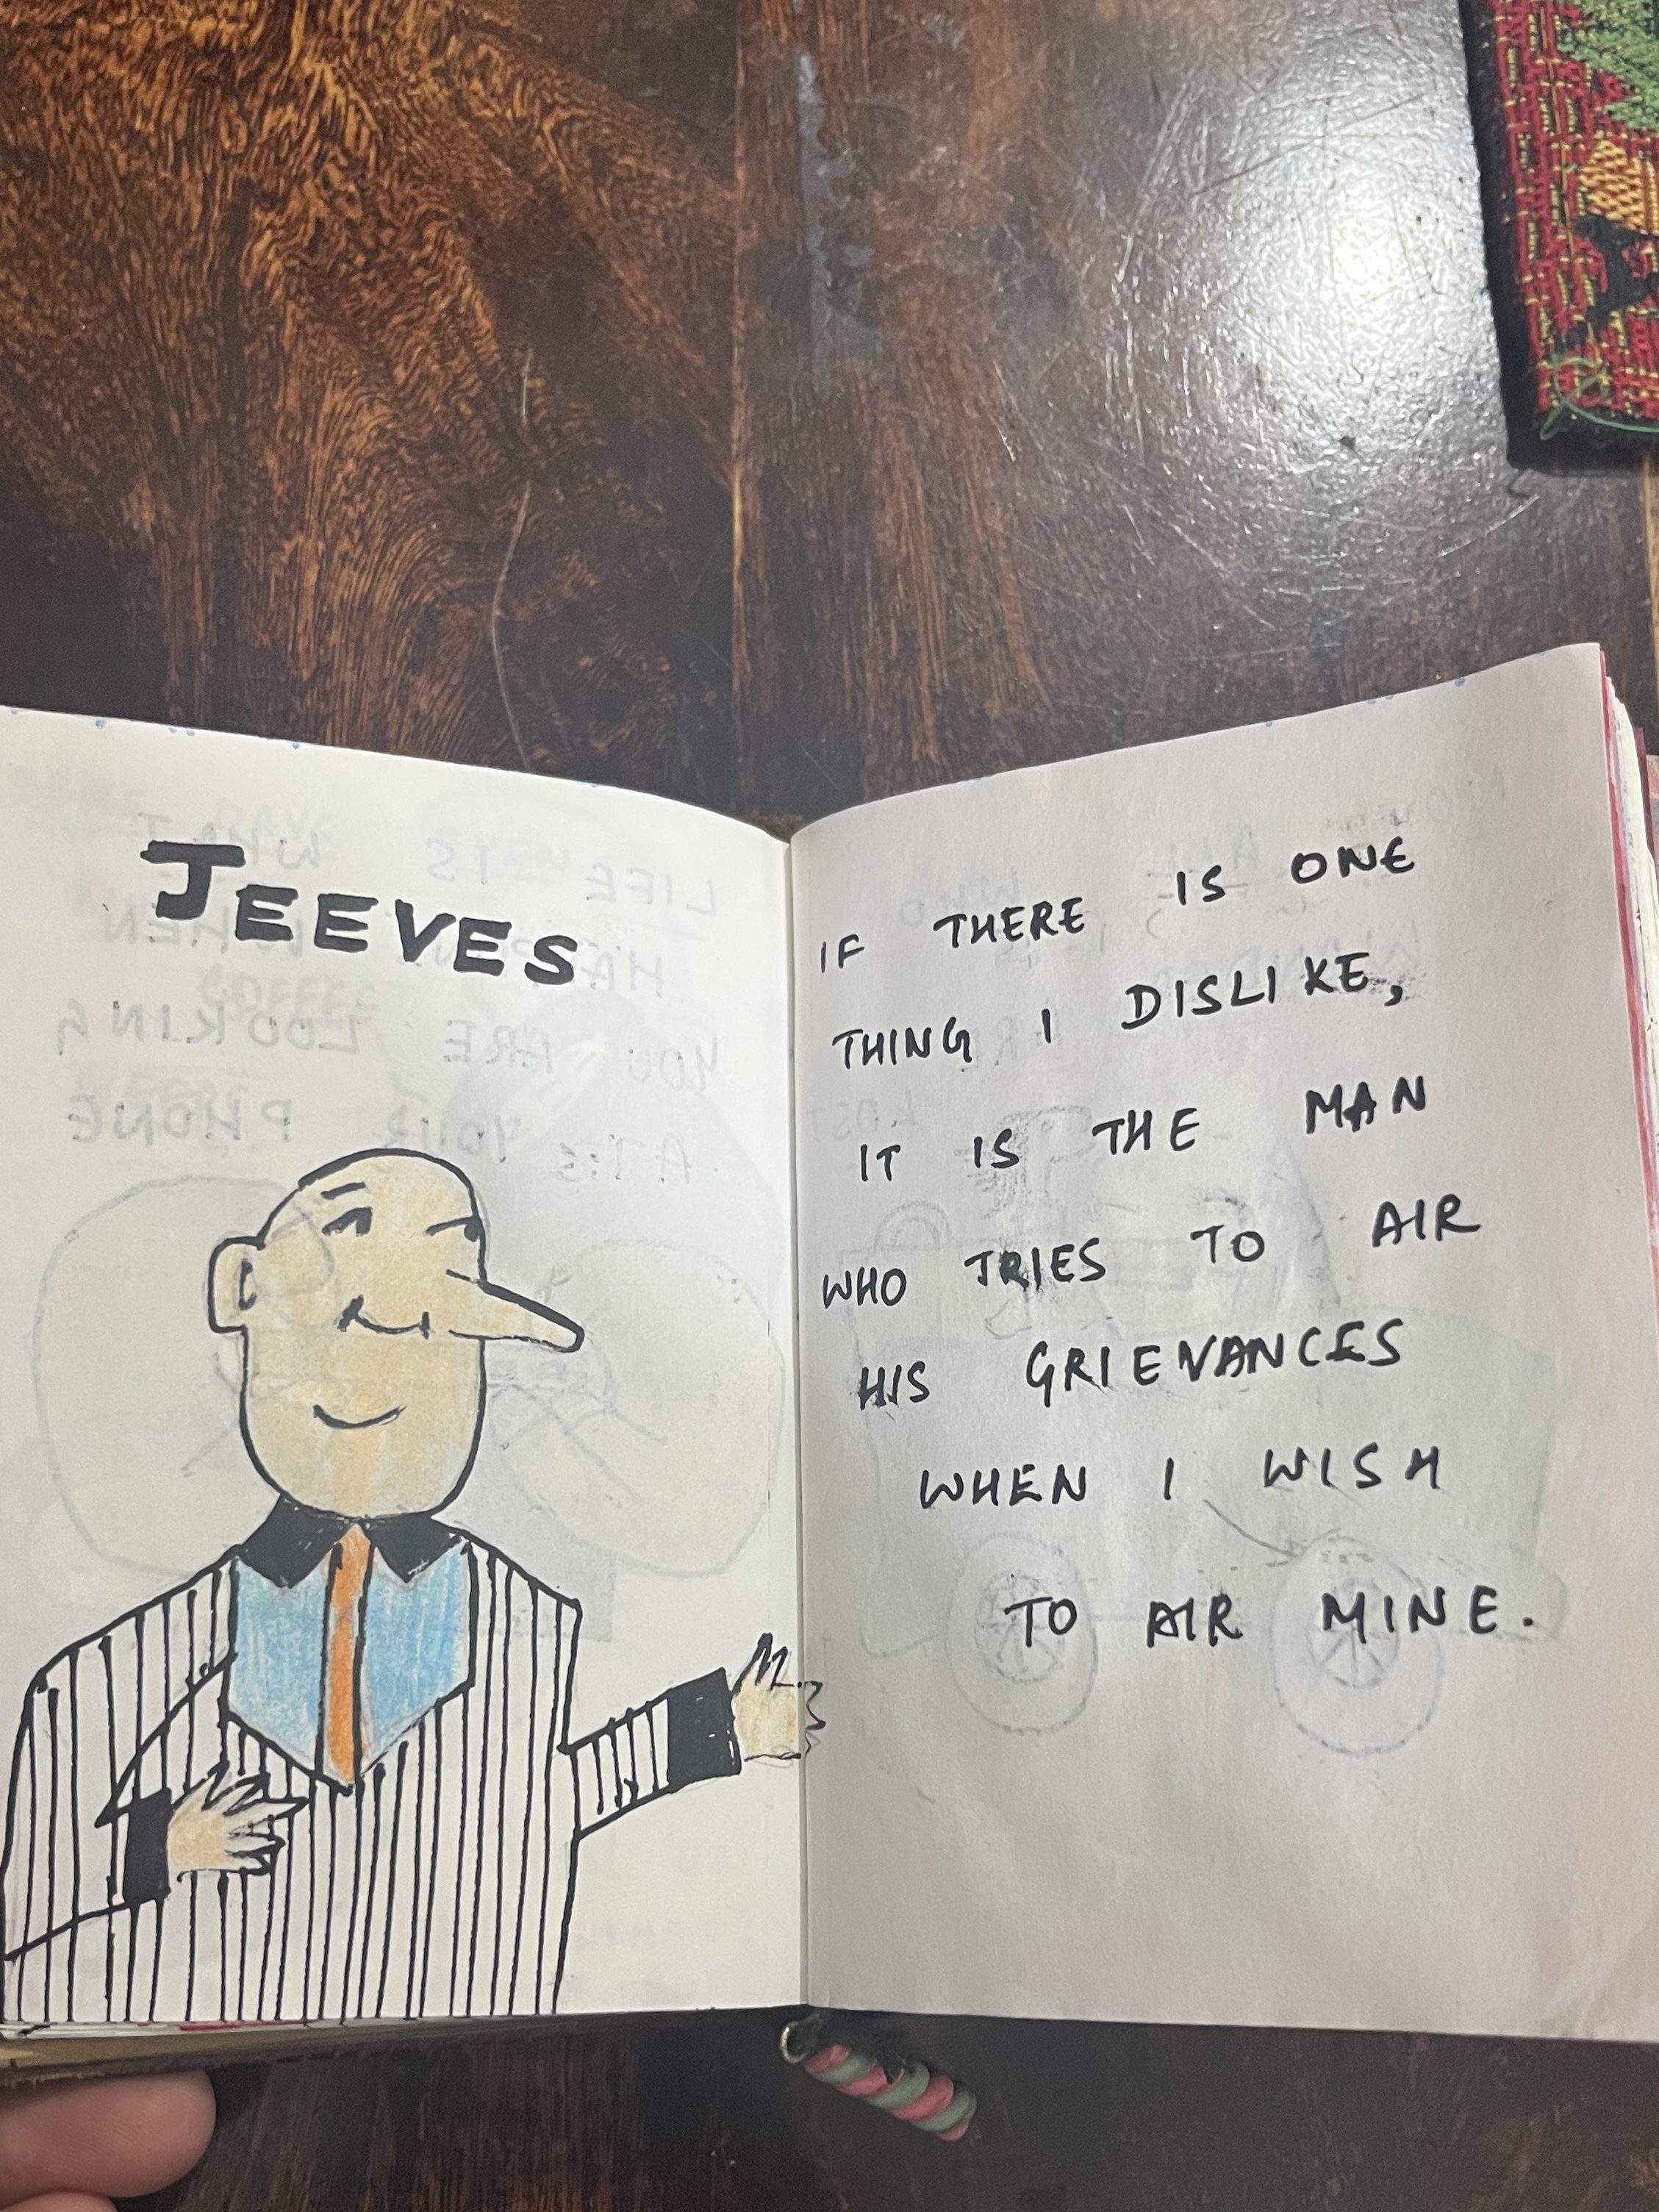 JEEVES
IF THERE IS ONE
THING I DISLIKE,
IT IS THE MAN
WHO TRIES TO AIR
HIS GRIEVANCES
WHEN I WISH
TO AIR MINE.